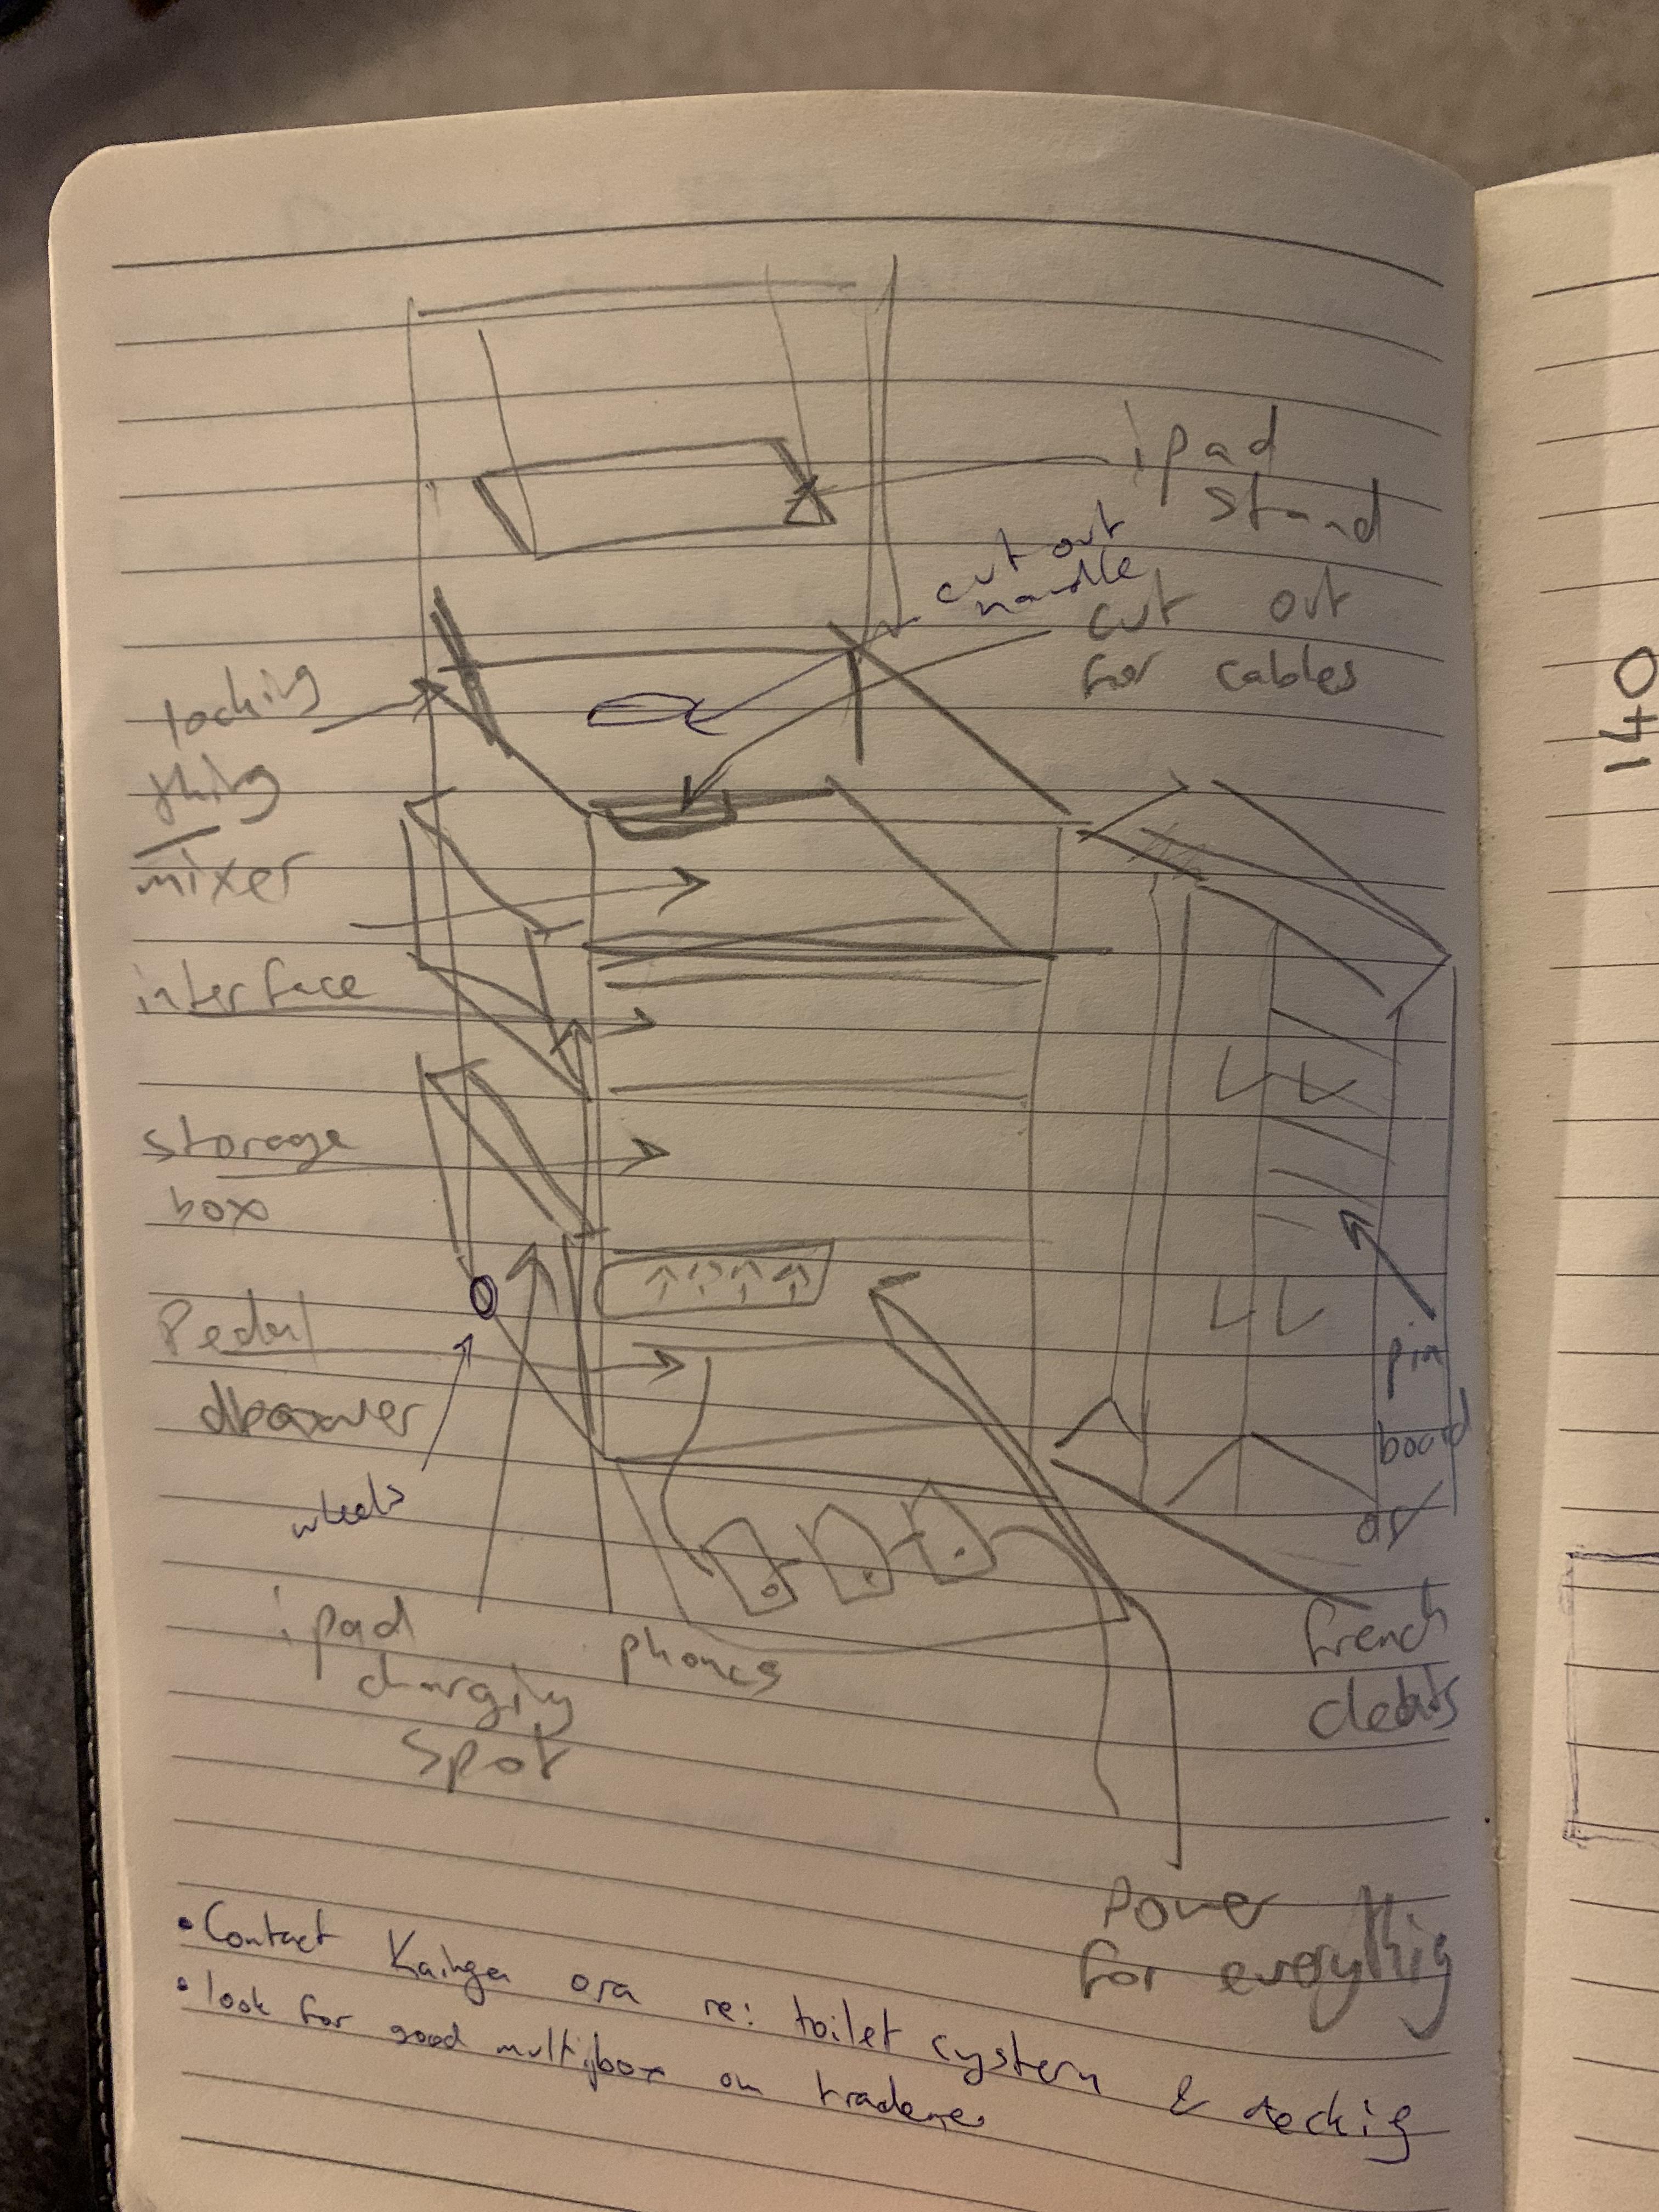 ipad
stand
cut out
handle
cut out
for cables
locking
thing
mixer
interface
storage
box
Pedal
wheels
pin
board
or
french
cleats
ipad
charging
spot
phones
Power
for everythig
• Contact Kainga ora re: toilet system &
• look for good multibox on trademe
140